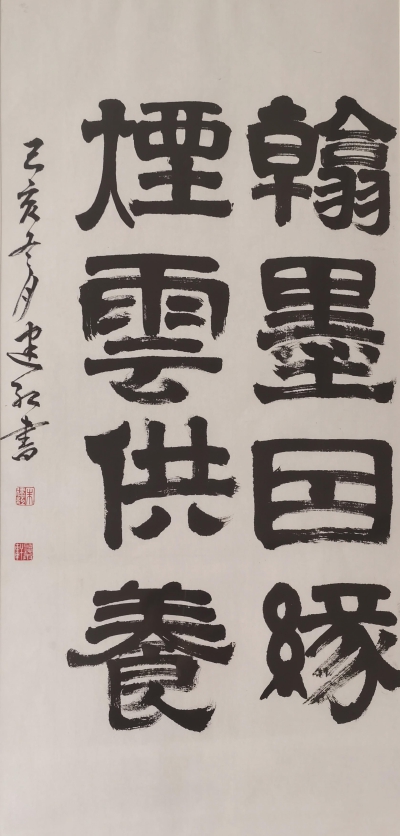 翰墨因缘
煙雲供養
己亥冬月建红書